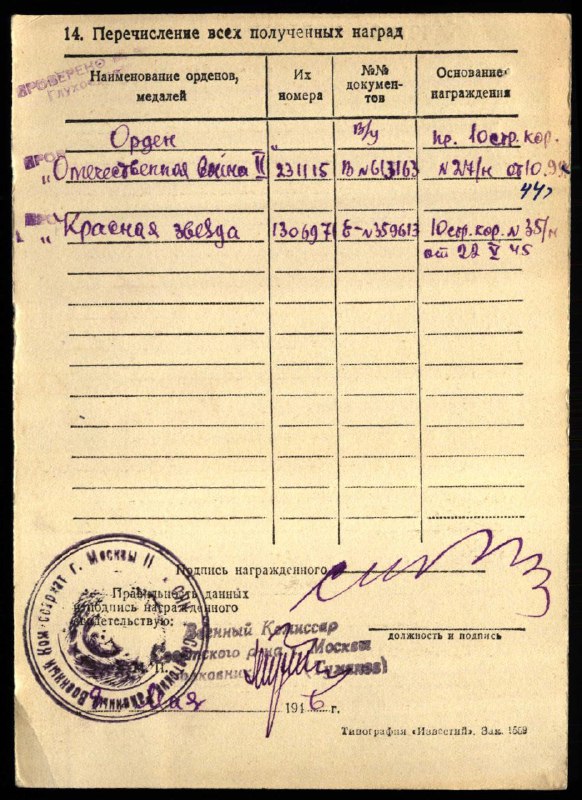 14. Перечисление всех полученных наград
ПРОВЕРЕНО
Наименование орденов, медалей
Их номера
№№ документов
Основание награждения
Орден
В/у
пр. 10 стр. кор.
„Отечественная война II
231115
В №613163
№217/н от 10.9
44г
„Красная звезда
130697
Е-№359613
10 стр. кор. №35/н
от 22 V 45
Подпись награжденного
Правильность данных
и подпись награжденного
свидетельствую:
Военный Комиссар
Советского р-на г. Москвы
Полковник
М. П.
должность и подпись
Военный Комиссариат г. Москвы
мая
194 6 г.
Типография «Известий». Зак. 1559